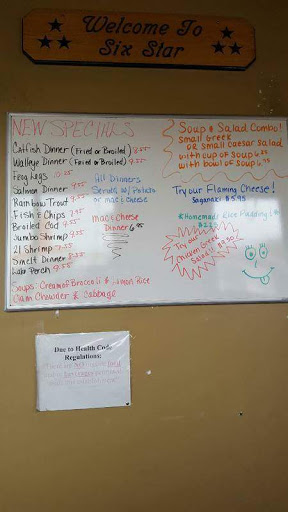 Welcome To
Six Star
NEW SPECIALS
Catfish Dinner (Fried or Broiled) 8.55
Walleye Dinner (Fried or Broiled) 9.55
Frog Legs 10.25
Salmon Dinner 9.55
Rainbow Trout 9.55
Fish & Chips 7.95
Broiled Cod 9.55
Jumbo Shrimp 9.55
21 Shrimp 7.55
Smelt Dinner 8.25
Lake Perch 9.55
Soups: Cream of Broccoli & Lemon Rice
Clam Chowder & Cabbage
All Dinners
Served w/ Potato
or mac & cheese
mac & cheese
Dinner 6.95
Soup & Salad Combo!
small Greek
or small caesar salad
with cup of soup
with bowl of soup
Try our Flaming Cheese!
Saganaki $5.95
Homemade Rice Pudding!
Try our
Chicken Greek
Salad
Due to Health Code
Regulations: